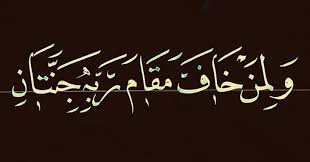 وَلِمَنْ خَافَ مَقَامَ رَبِّهِ جَنَّتَانِ